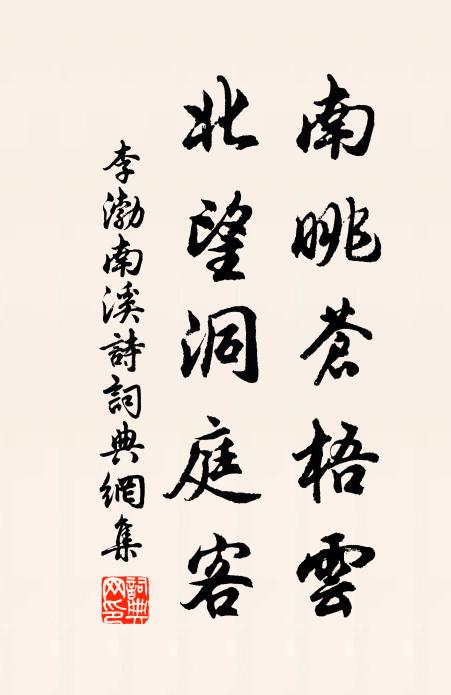 南眺蒼梧雲
北望洞庭客
李渤南溪詩詞典網集
詞典网印